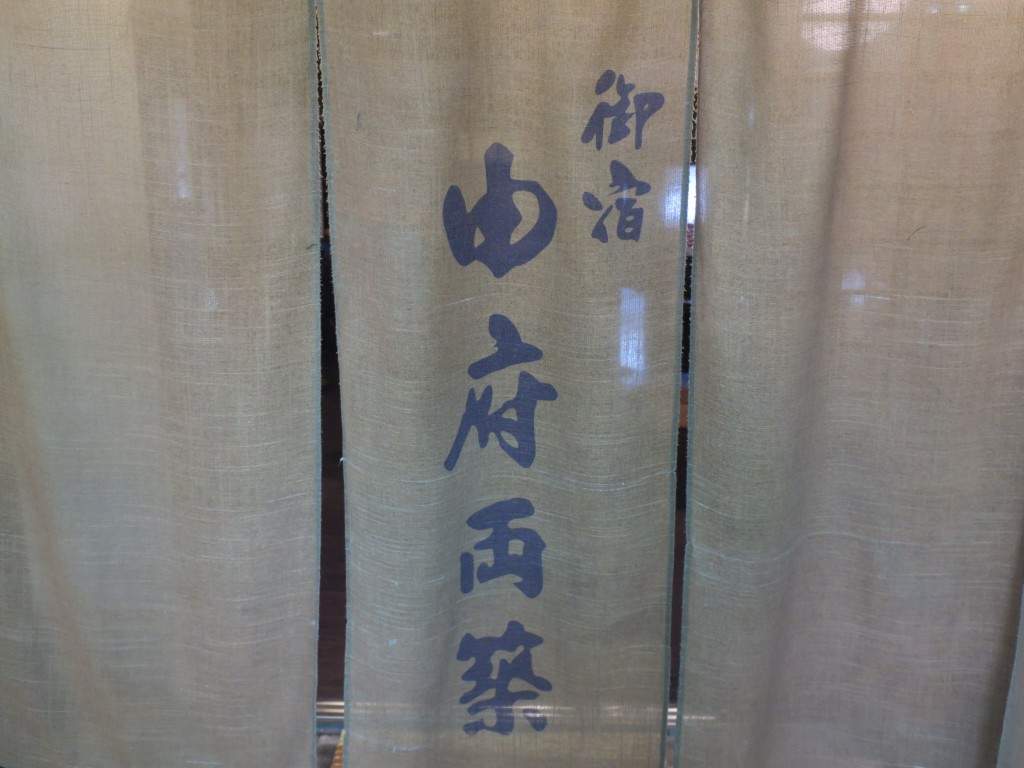 御宿
由府両築